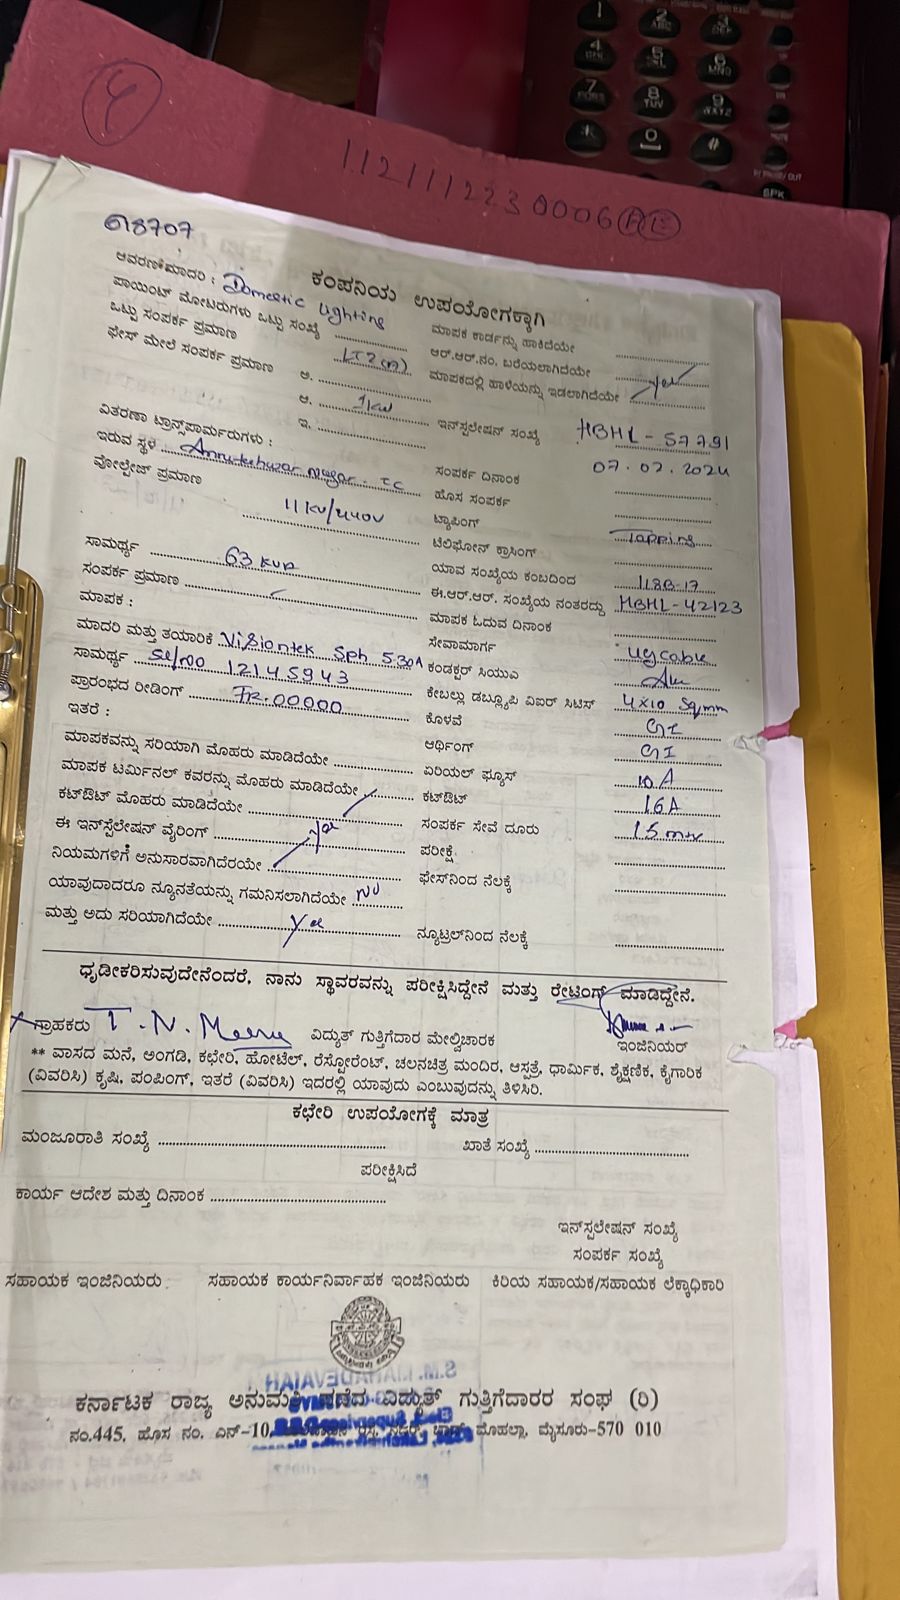 112111223 0006 AE
68707
ಕಂಪನಿಯ ಉಪಯೋಗಕ್ಕಾಗಿ
ಆವರಣ ಮಾದರಿ : Domestic Lighting
ಪಾಯಿಂಟ್ ಮೋಟರುಗಳು ಒಟ್ಟು ಸಂಖ್ಯೆ
ಒಟ್ಟು ಸಂಪರ್ಕ ಪ್ರಮಾಣ LT2(a)
ಫೇಸ್ ಮೇಲೆ ಸಂಪರ್ಕ ಪ್ರಮಾಣ ಅ.
ಆ. 1KW
ಇ.
ವಿತರಣಾ ಟ್ರಾನ್ಸ್‌ಪಾರ್ಮರುಗಳು :
ಇರುವ ಸ್ಥಳ Amruteshwar Nagar. TC
ವೋಲ್ಟೇಜ್ ಪ್ರಮಾಣ 11KV/440V
ಸಾಮರ್ಥ್ಯ 63 KVA
ಸಂಪರ್ಕ ಪ್ರಮಾಣ
ಮಾಪಕ :
ಮಾದರಿ ಮತ್ತು ತಯಾರಿಕೆ Visiontek Sph 5.30A
ಸಾಮರ್ಥ್ಯ Sl/no 12145943
ಪ್ರಾರಂಭದ ರೀಡಿಂಗ್ FR.00000
ಇತರೆ :
ಮಾಪಕವನ್ನು ಸರಿಯಾಗಿ ಮೊಹರು ಮಾಡಿದೆಯೇ
ಮಾಪಕ ಟರ್ಮಿನಲ್ ಕವರನ್ನು ಮೊಹರು ಮಾಡಿದೆಯೇ
ಕಟ್‌ಔಟ್ ಮೊಹರು ಮಾಡಿದೆಯೇ
ಈ ಇನ್‌ಸ್ಟೆಲೇಷನ್ ವೈರಿಂಗ್ yes
ನಿಯಮಗಳಿಗೆ ಅನುಸಾರವಾಗಿದೆರಯೇ
ಯಾವುದಾದರೂ ನ್ಯೂನತೆಯನ್ನು ಗಮನಿಸಲಾಗಿದೆಯೇ No
ಮತ್ತು ಅದು ಸರಿಯಾಗಿದೆಯೇ yes
ಮಾಪಕ ಕಾರ್ಡನ್ನು ಹಾಕಿದೆಯೇ
ಆರ್.ಆರ್.ನಂ. ಬರೆಯಲಾಗಿದೆಯೇ
ಮಾಪಕದಲ್ಲಿ ಹಾಳೆಯನ್ನು ಇಡಲಾಗಿದೆಯೇ yes
ಇನ್‌ಸ್ಪಲೇಷನ್ ಸಂಖ್ಯೆ HBHL-57791
ಸಂಪರ್ಕ ದಿನಾಂಕ 07.02.2024
ಹೊಸ ಸಂಪರ್ಕ
ಟ್ಯಾಪಿಂಗ್ Tapping
ಟೆಲಿಫೋನ್ ಕ್ರಾಸಿಂಗ್
ಯಾವ ಸಂಖ್ಯೆಯ ಕಂಬದಿಂದ 118B-17
ಈ.ಆರ್.ಆರ್. ಸಂಖ್ಯೆಯ ನಂತರದ್ದು HBHL-42123
ಮಾಪಕ ಓದುವ ದಿನಾಂಕ
ಸೇವಾಮಾರ್ಗ ugcable
ಕಂಡಕ್ಟರ್ ಸಿಯುವಿ
ಕೇಬಲ್ಲು ಡಬ್ಲ್ಯೂಪಿ ವಿಐರ್ ಸಿಟಿಸ್ 4x10 Sqmm
ಕೊಳವೆ GI
ಆರ್ಥಿಂಗ್ GI
ಏರಿಯಲ್ ಫ್ಯೂಸ್ 10A
ಕಟ್‌ಔಟ್ 16A
ಸಂಪರ್ಕ ಸೇವೆ ದೂರು 15 mtr
ಪರೀಕ್ಷೆ
ಫೇಸ್‌ನಿಂದ ನೆಲಕ್ಕೆ
ನ್ಯೂಟ್ರಲ್‌ನಿಂದ ನೆಲಕ್ಕೆ
ಧೃಡೀಕರಿಸುವುದೇನೆಂದರೆ, ನಾನು ಸ್ಥಾವರವನ್ನು ಪರೀಕ್ಷಿಸಿದ್ದೇನೆ ಮತ್ತು ರೇಟಿಂಗ್ ಮಾಡಿದ್ದೇನೆ.
ಗ್ರಾಹಕರು ವಿದ್ಯುತ್ ಗುತ್ತಿಗೆದಾರ ಮೇಲ್ವಿಚಾರಕ ಇಂಜಿನಿಯರ್
** ವಾಸದ ಮನೆ, ಅಂಗಡಿ, ಕಛೇರಿ, ಹೋಟೆಲ್, ರೆಸ್ಟೋರೆಂಟ್, ಚಲನಚಿತ್ರ ಮಂದಿರ, ಆಸ್ಪತ್ರೆ, ಧಾರ್ಮಿಕ, ಶೈಕ್ಷಣಿಕ, ಕೈಗಾರಿಕ
(ವಿವರಿಸಿ) ಕೃಷಿ, ಪಂಪಿಂಗ್, ಇತರೆ (ವಿವರಿಸಿ) ಇದರಲ್ಲಿ ಯಾವುದು ಎಂಬುವುದನ್ನು ತಿಳಿಸಿರಿ.
ಕಛೇರಿ ಉಪಯೋಗಕ್ಕೆ ಮಾತ್ರ
ಮಂಜೂರಾತಿ ಸಂಖ್ಯೆ ಖಾತೆ ಸಂಖ್ಯೆ
ಪರೀಕ್ಷಿಸಿದೆ
ಕಾರ್ಯ ಆದೇಶ ಮತ್ತು ದಿನಾಂಕ
ಇನ್‌ಸ್ಪಲೇಷನ್ ಸಂಖ್ಯೆ
ಸಂಪರ್ಕ ಸಂಖ್ಯೆ
ಸಹಾಯಕ ಇಂಜಿನಿಯರು ಸಹಾಯಕ ಕಾರ್ಯನಿರ್ವಾಹಕ ಇಂಜಿನಿಯರು ಕಿರಿಯ ಸಹಾಯಕ/ಸಹಾಯಕ ಲೆಕ್ಕಾಧಿಕಾರಿ
ಕರ್ನಾಟಕ ರಾಜ್ಯ ಅನುಮತಿ ಪಡೆದ ವಿದ್ಯುತ್ ಗುತ್ತಿಗೆದಾರರ ಸಂಘ (ರಿ)
ನಂ.445, ಹೊಸ ನಂ. ಎನ್-10, ಮೊಹಲ್ಲಾ, ಮೈಸೂರು-570 010